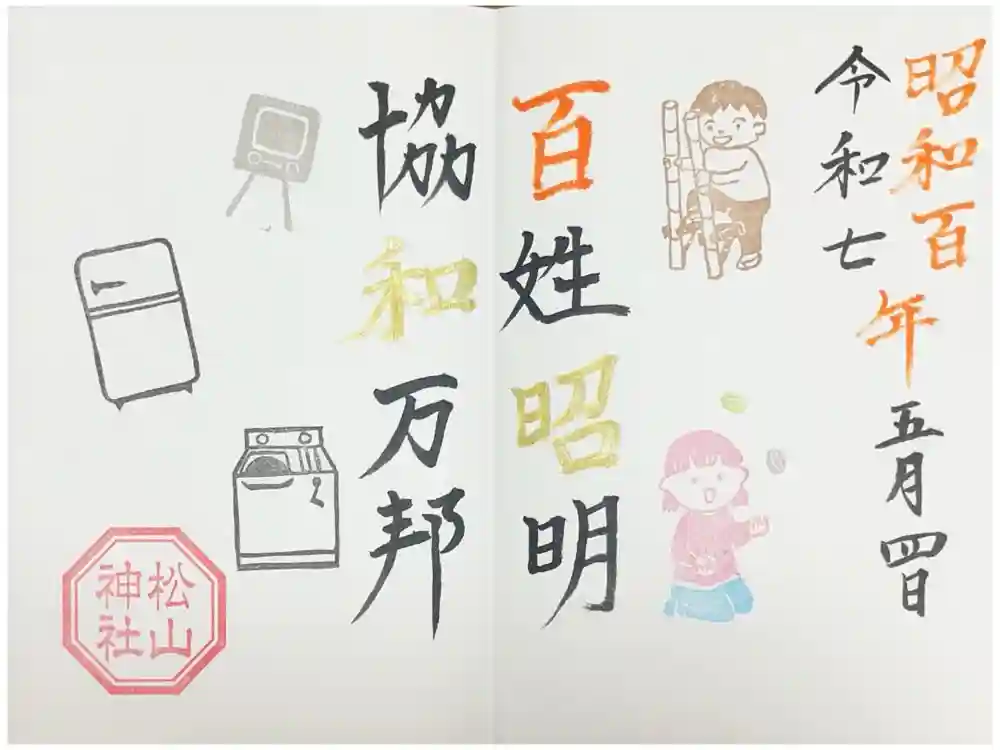 昭和百年
令和七
五月四日
百姓昭明
協和万邦
松山
神社